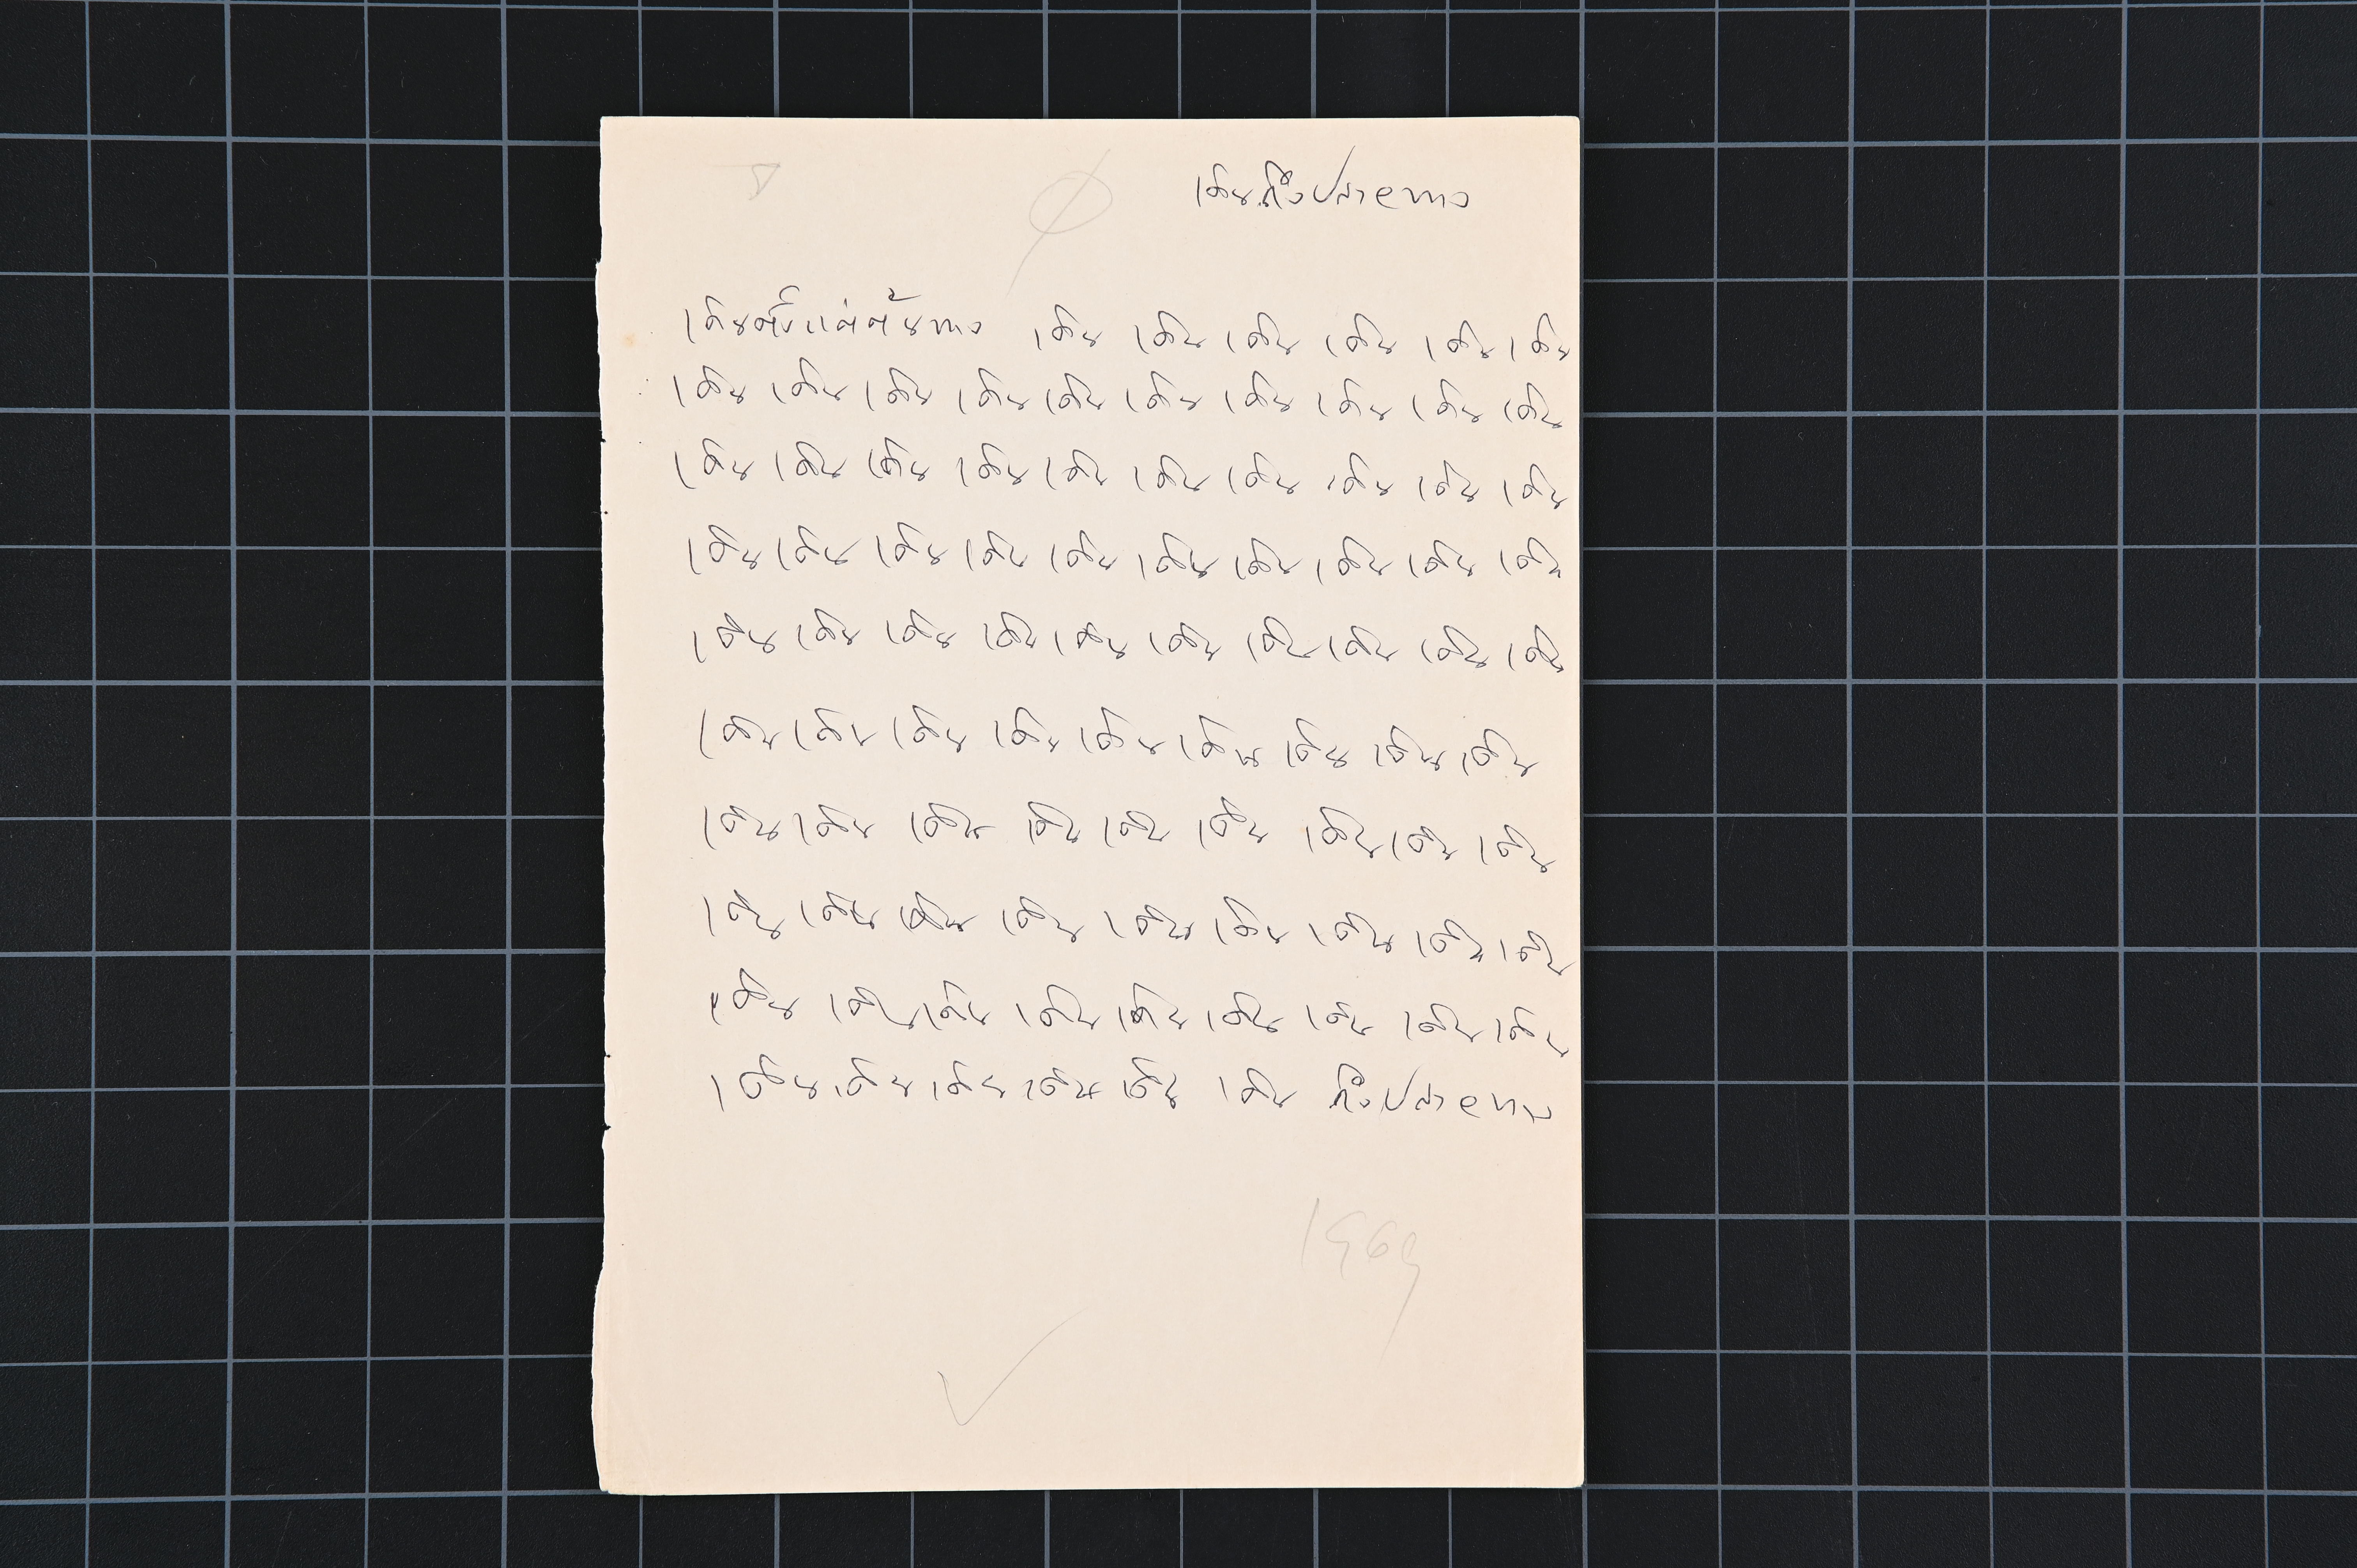 เดินถึงปลายทาง
เดินตั้งแต่ต้นทาง เดิน เดิน เดิน เดิน เดิน เดิน
เดิน เดิน เดิน เดิน เดิน เดิน เดิน เดิน เดิน เดิน
เดิน เดิน เดิน เดิน เดิน เดิน เดิน เดิน เดิน เดิน
เดิน เดิน เดิน เดิน เดิน เดิน เดิน เดิน เดิน เดิน
เดิน เดิน เดิน เดิน เดิน เดิน เดิน เดิน เดิน เดิน
เดิน เดิน เดิน เดิน เดิน เดิน เดิน เดิน เดิน
เดิน เดิน เดิน เดิน เดิน เดิน เดิน เดิน เดิน
เดิน เดิน เดิน เดิน เดิน เดิน เดิน เดิน เดิน
เดิน เดิน เดิน เดิน เดิน เดิน เดิน เดิน เดิน
เดิน เดิน เดิน เดิน เดิน เดิน ถึงปลายทาง
1969